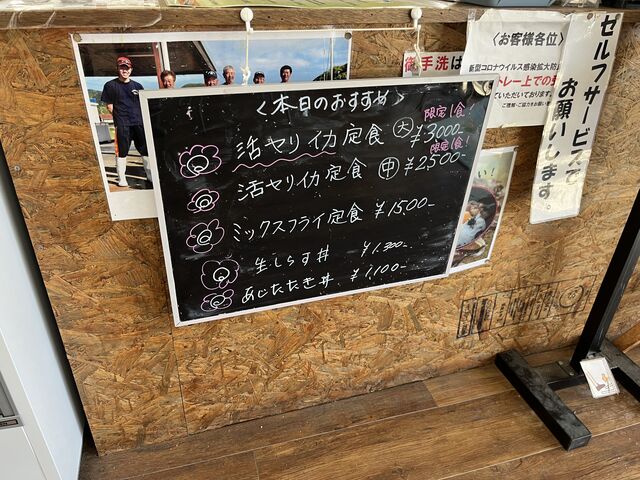 〈本日のおすすめ〉
限定1食!
活ヤリイカ定食 大 ¥3000-
限定1食!
活ヤリイカ定食 中 ¥2,500-
ミックスフライ定食 ¥1500-
生しらす丼 ¥1,300-
あじたたき丼 ¥1,100-
御手洗は
〈お客様各位〉
新型コロナウイルス感染拡大防
トレー上での
ていただいております。
ご理解・ご協力をお願い
セルフサービスで
お願いします。